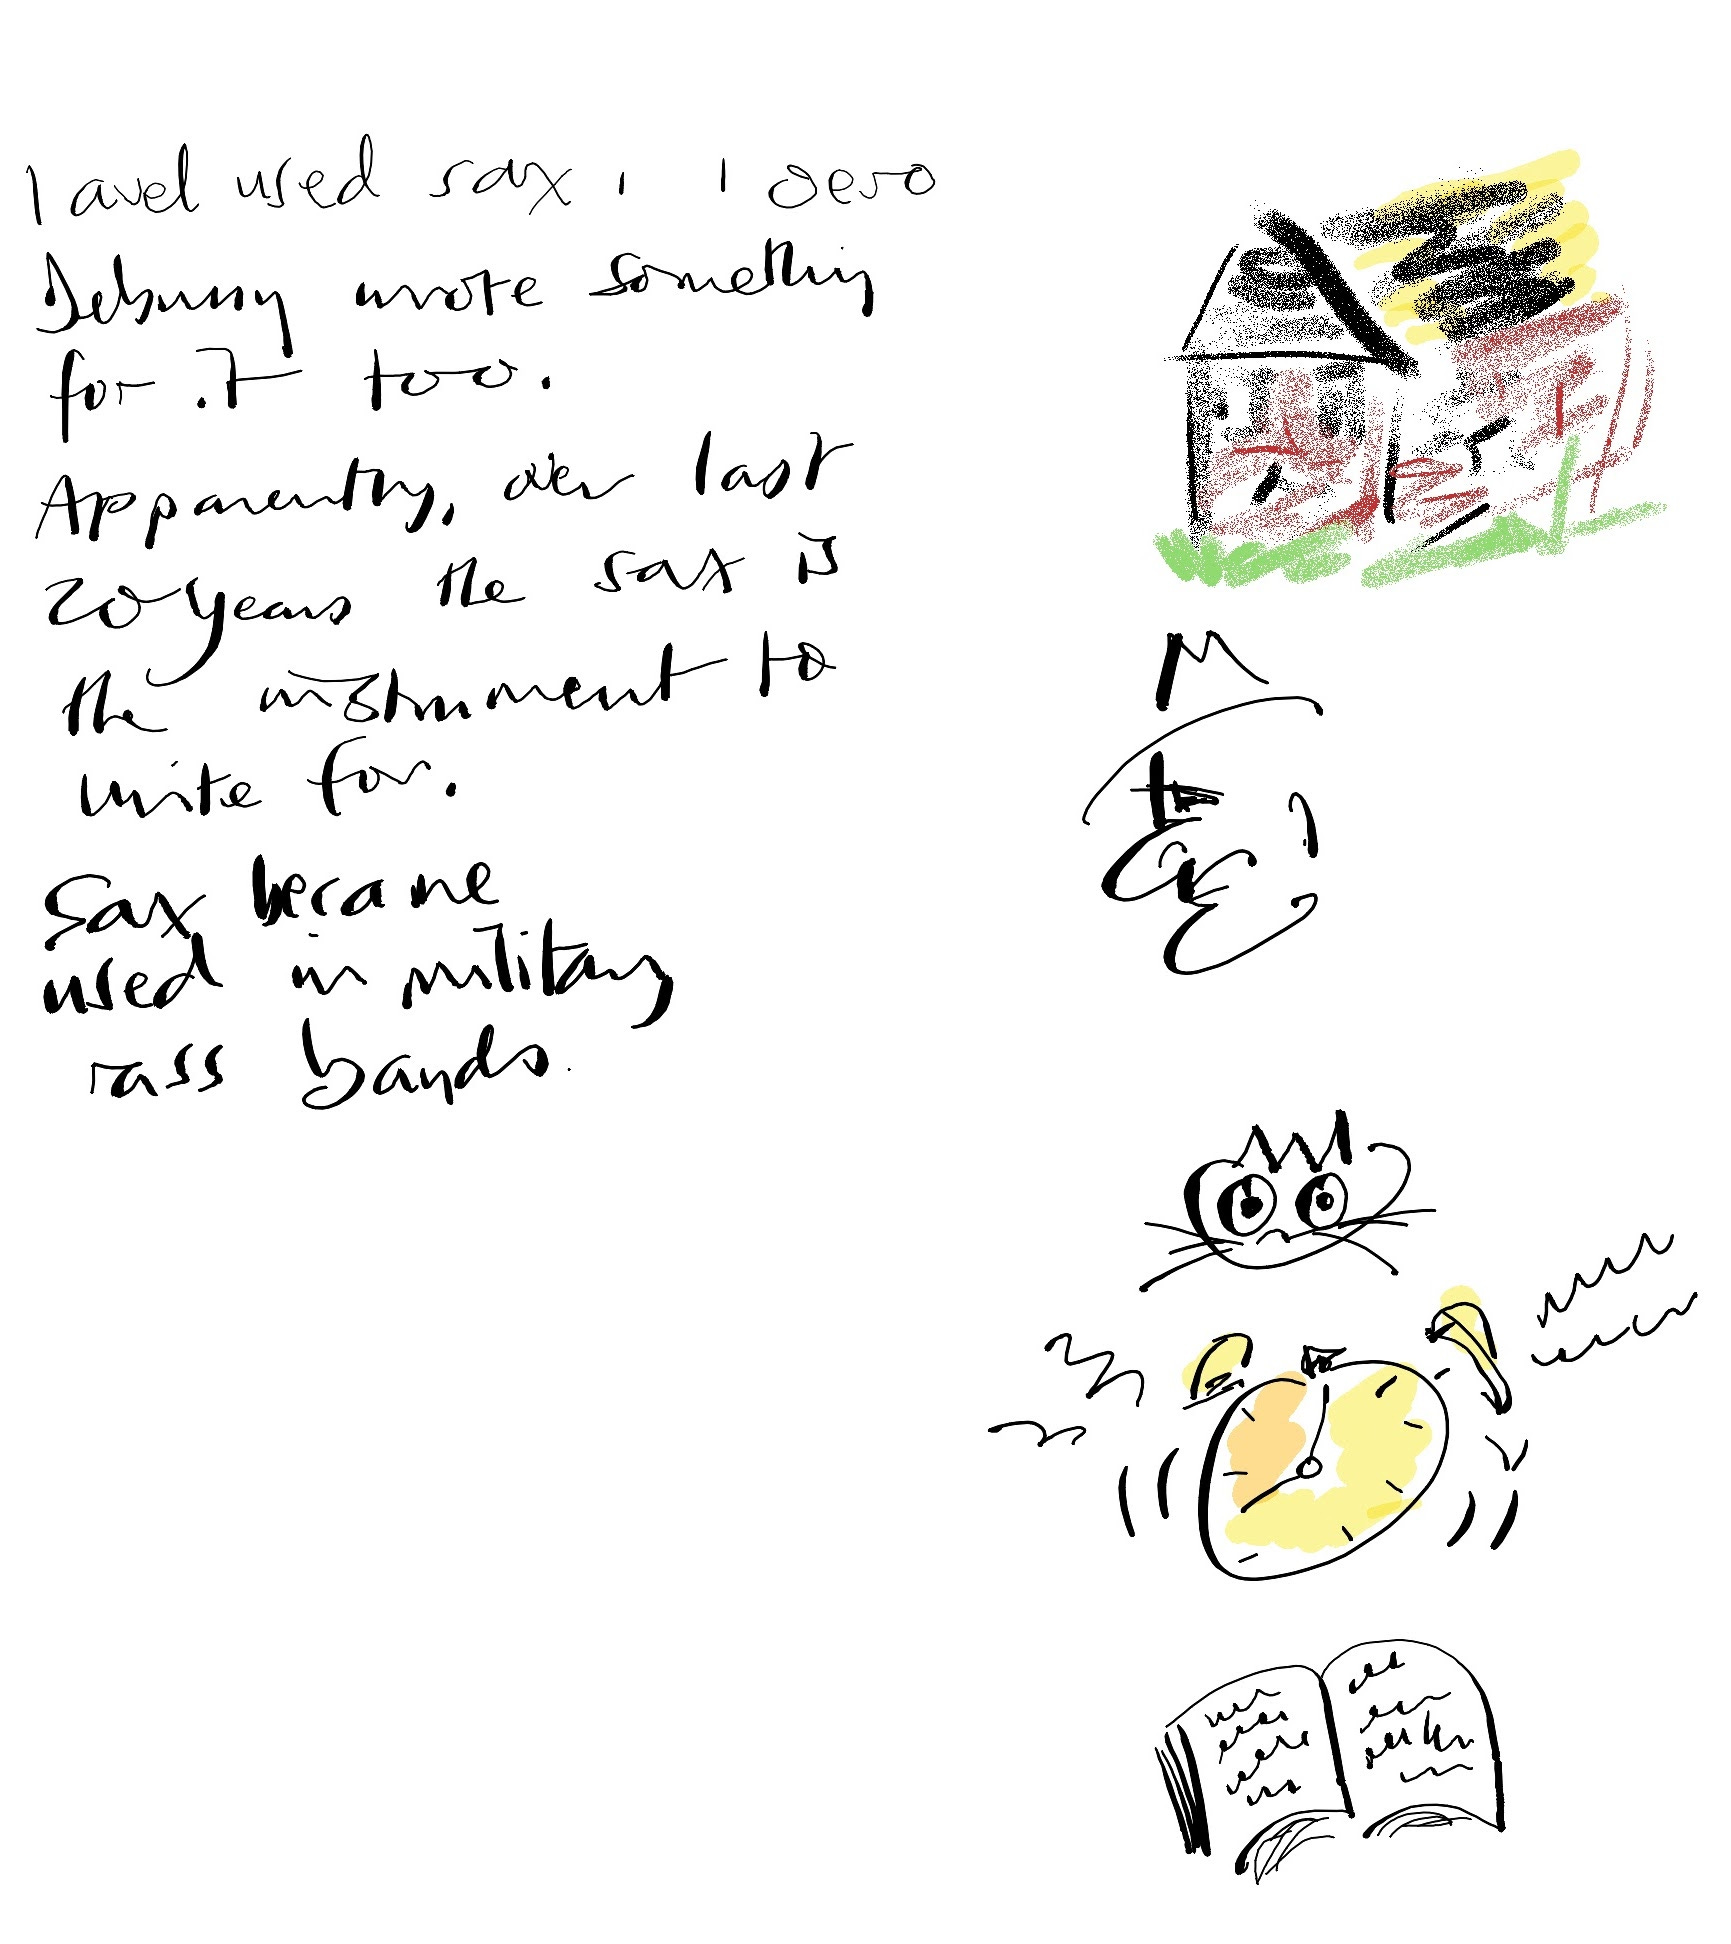 used sax,
Debussy wrote something
for it too.
Apparently, over last
20 years the sax is
the instrument to
write for.
Sax became
used in military
rass bands.